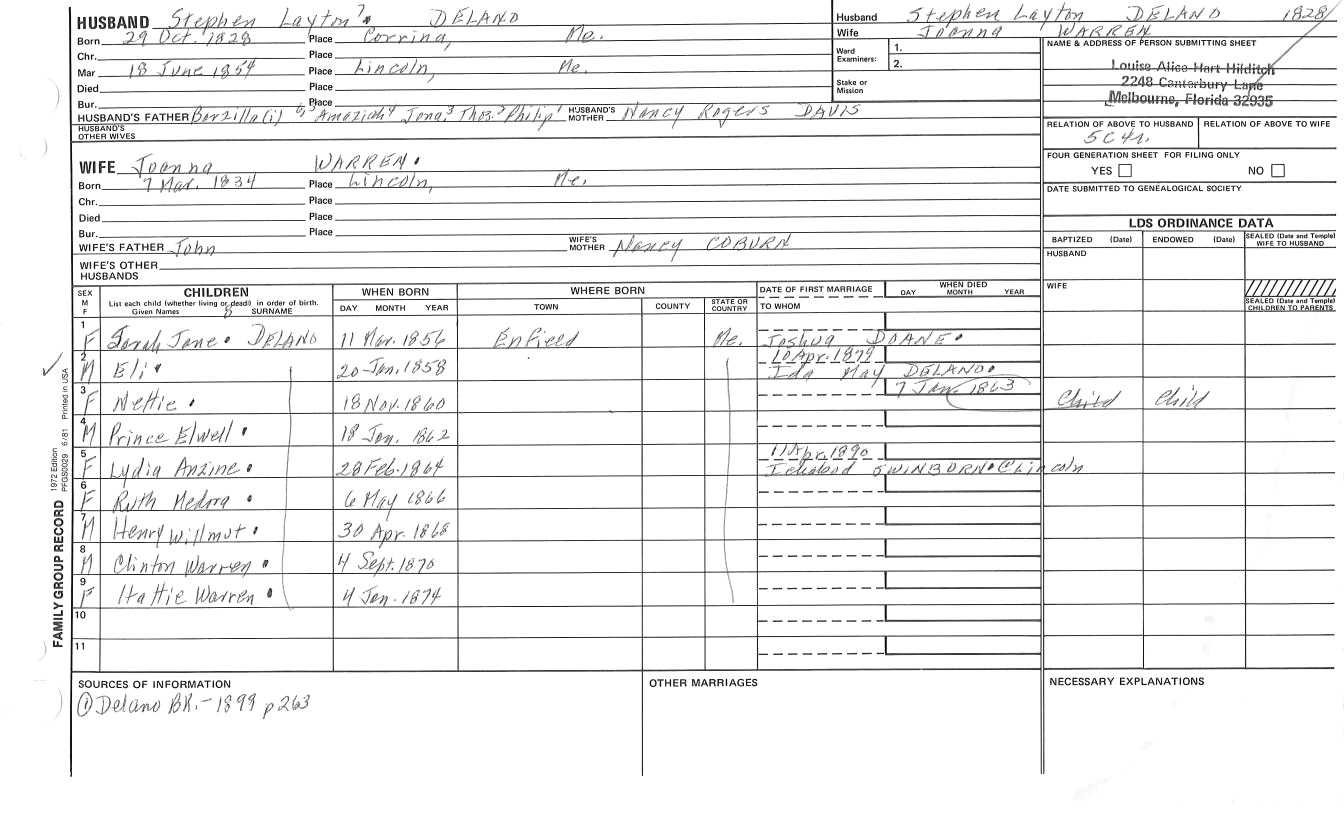 HUSBAND Stephen Layton 7. DELANO
Born 29 Oct. 1828 Place Corrina, Me.
Chr. Place
Mar 18 June 1854 Place Lincoln, Me.
Died Place
Bur. Place
HUSBAND'S FATHER Barzilla(i) 6, 5 Amaziah 4 Jona. 3 Thos. 2 Philip 1 HUSBAND'S MOTHER Nancy Rogers DAVIS
HUSBAND'S OTHER WIVES
WIFE Joanna WARREN.
Born 7 Mar. 1834 Place Lincoln, Me.
Chr. Place
Died Place
Bur. Place
WIFE'S FATHER John WIFE'S MOTHER Nancy COBURN
WIFE'S OTHER HUSBANDS
Husband Stephen Layton DELANO 1828/
Wife Joanna WARREN
Ward Examiners: 1.
2.
Stake or Mission
NAME & ADDRESS OF PERSON SUBMITTING SHEET
Louise Alice Hart Hilditch
2248 Canterbury Lane
Melbourne, Florida 32935
RELATION OF ABOVE TO HUSBAND RELATION OF ABOVE TO WIFE
5C4r.
FOUR GENERATION SHEET FOR FILING ONLY
YES NO
DATE SUBMITTED TO GENEALOGICAL SOCIETY
LDS ORDINANCE DATA
BAPTIZED (Date) ENDOWED (Date) SEALED (Date and Temple) WIFE TO HUSBAND
HUSBAND
WIFE
SEALED (Date and Temple) CHILDREN TO PARENTS
SEX M F CHILDREN List each child (whether living or dead) in order of birth. Given Names SURNAME WHEN BORN DAY MONTH YEAR WHERE BORN TOWN COUNTY STATE OR COUNTRY DATE OF FIRST MARRIAGE TO WHOM WHEN DIED DAY MONTH YEAR
1 F Sarah Jane. DELANO 11 Mar. 1856 Enfield Me. Joshua DOANE.
2 M Eli. 20 Jan. 1858 10 Apr. 1879 Ida May DELANO.
3 F Nettie. 18 Nov. 1860 7 Jan. 1863 Child Child
4 M Prince Elwell. 18 Jan. 1862
5 F Lydia Anzine. 28 Feb. 1864 11 Apr. 1890 Ichabod SWINBORN. (Lincoln
6 F Ruth Medora. 6 May 1866
7 M Henry Willmut. 30 Apr. 1868
8 M Clinton Warren. 4 Sept. 1870
9 F Hattie Warren. 4 Jan. 1874
10
11
SOURCES OF INFORMATION
① Delano BK. - 1899 p 263
OTHER MARRIAGES
NECESSARY EXPLANATIONS
FAMILY GROUP RECORD 1972 Edition PFGS0029 6/81 Printed in USA